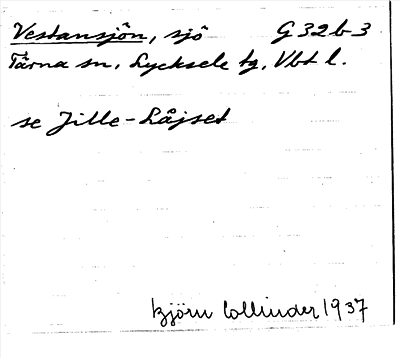 Vestansjön, sjö G 32 b 3
Tärna sn, Lycksele tg, Vbt l.
se Jille-Låjset
Björn Collinder 1937